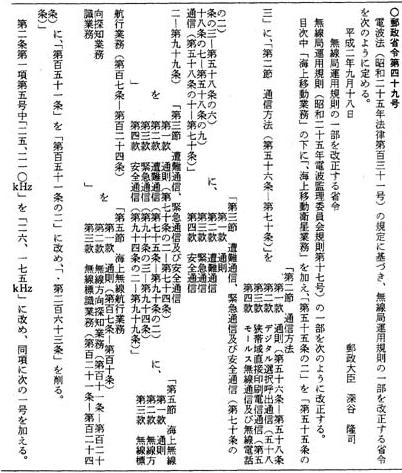 〇郵政省令第四十九号
電波法(昭和二十五年法律第百三十一号)の規定に基づき、無線局運用規則の一部を改正する省令
を次のように定める。
平成二年九月十八日
郵政大臣 深谷 隆司
無線局運用規則の一部を改正する省令
無線局運用規則(昭和二十五年電波監理委員会規則第十七号)の一部を次のように改正する。
目次中「海上移動業務」の下に「、海上移動衛星業務」を加え、「第五十五条の二」を「第五十五条の
三」に、「第二節 通信方法(第五十六条―第七十条)」を
「第二節 通信方法
第一款 通則(第五十六条―第五十八条
の三)
第二款 デジタル選択呼出通信(第五十八
条の四―第五十八条の六)
第三款 狭帯域直接印刷電信通信(第五
十八条の七―第五十八条の九)
第四款 モールス無線通信及び無線電話
通信(第五十八条の十―第七十条)」
に、
「第三節 遭難通信、緊急通信及び安全通信(第七十条の
二―第九十九条)」
を
「第三節 遭難通信、緊急通信及び安全通信
第一款 通則
第二款 遭難通信
第三款 緊急通信
第四款 安全通信
に、
「第五節 海上無線
航行業務(第百七条―第百二十四条)
を
「第五節 海上無線航行業務
第一款 通則(第百七条―第百十条)
第二款 無線方向探知業務
第三款 無線標識業務
条)」に、「第百五十一条」を「第百五十一条の二」に改め、「・第二百六十三条」を削る。
第二条第一項第五号中「二五、二一〇kHz」を「二六、一七五kHz」に改め、同項に次の一号を加える。